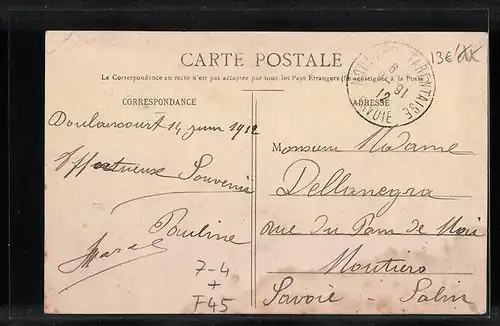 CARTE POSTALE
La Correspondance au recto n'est pas acceptée par tous les Pays Étrangers (Se renseigner à la Poste)
13€
TARENTAISE
SAVOIE
CORRESPONDANCE
ADRESSE
Doulaincourt 14 juin 1912
Affectueux Souvenir
Pauline
7-4
+
F45
Monsieur Madame
Dellanegra
rue du Pam de Moie
Moutiers
Savoie - Salin